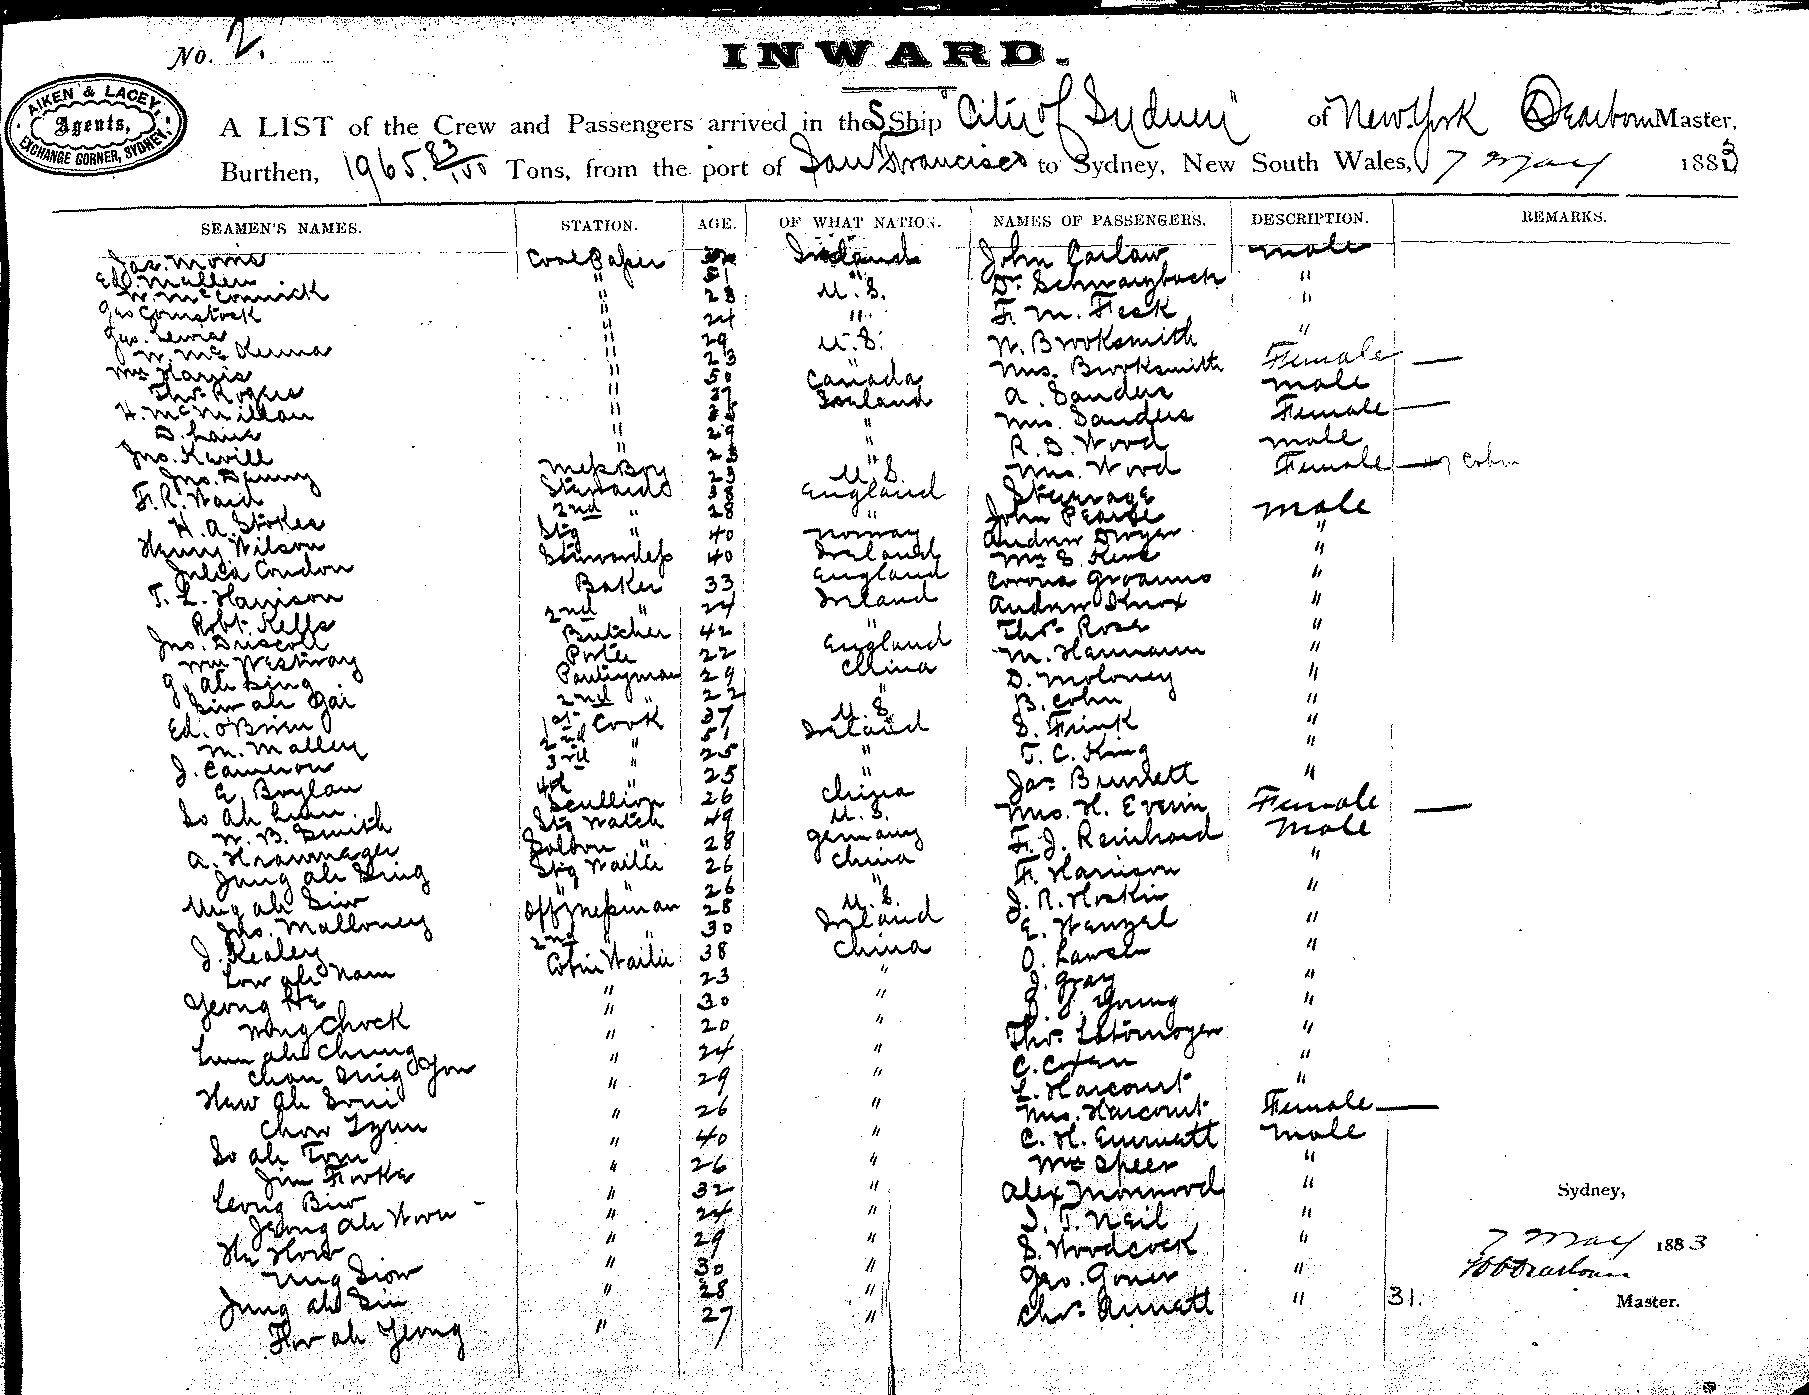 No. 2.
INWARD.
AIKEN & LACEY,
Agents,
EXCHANGE CORNER, SYDNEY.
A LIST of the Crew and Passengers arrived in the S Ship "City of Sydney" of New York Dearborn Master,
Burthen, 1965. 83/100 Tons, from the port of San Francisco to Sydney, New South Wales, 7 May 1883
SEAMEN'S NAMES. STATION. AGE. OF WHAT NATION. NAMES OF PASSENGERS. DESCRIPTION. REMARKS.
Jas. Coal Passer Ireland John Carlaw male
Ed. Mullen " " Dr Schwarzbach "
W. McCormick " 28 U.S. F. M. Fisk "
Geo Comstock " 24 " W. Brooksmith "
Geo. Lewis " 29 U.S. Mrs. Brooksmith Female —
W. McKenna " 23 Canada A. Sanders male
Wm Harris " 50 Ireland Mrs. Sanders Female —
Thos Rogers " " R. D. Wood male
H. McMillan " " Mrs. Wood Female — Cohn
D. Lane " 29 Steerage
Jno. Kavill " John Pearse male
Jno. Denny Mess Boy 23 U.S. Andrew Dwyer "
F. R. Ward Stewards 38 England "
H. A. Stokes 2nd " 28 " "
Henry Wilson Stg " 40 Norway Andrew Knox "
Julia Condon Stewardess 40 Ireland Thos. Rose "
T. L. Harrison Baker 33 England M. Hermann "
Robt. Kells 2nd " 24 Ireland D. Moloney "
Jno. Driscoll Butcher 42 " B. Cohn "
Wm Westway Porter 22 England S. Frink "
Ah Sing Pantryman 29 China T. C. King "
Siw ah Gai 2nd " 22 " Jas Burdett "
Ed. O'Brien 1st Cook 37 U.S. Mrs. H. Everin Female —
M. Malley 2nd " 51 Ireland F. J. Reinhard male
J. Cameron 3rd " 25 " F. Harrison "
E. Boylan 4th 25 " J. R. Hoskin "
So Ah Lum Scullion 26 China E. Wenzel "
W. B. Smith Stg Watch 49 U.S. O. Lawson "
A. Saloon " 28 Germany J. Gray "
Jung ah Sing Stg Waiter 26 China Young "
Ung ah Siw " 26 " Thos.
Jno. Malloney Off Messman 28 U.S. C. "
J. Kealey 2nd " 30 Ireland L. Harcourt "
Low ah Nam Cabin Waiter 38 China Mrs. Harcourt Female —
Yeong He " 23 " C. H. Emmett male
Wong Chock " 30 " Mr Speer "
Lum ah Chung " 20 " Alex "
Chan Sing Yow " 24 " J. T. Neil "
How ah Soni " 29 " S. Woodcock "
Chow " 26 " Geo. "
So ah Tom " 40 " Chas. Annett "
Jim Fooke " 26 "
Leong Biw " 32 "
Jeong Ah Won " 24 "
He How " 29 "
Ung Siow " 30 "
Jung ah Sin " 28 "
Thor ah Yeong " 27 "
31.
Sydney,
7 May 1883
Dearborn
Master.